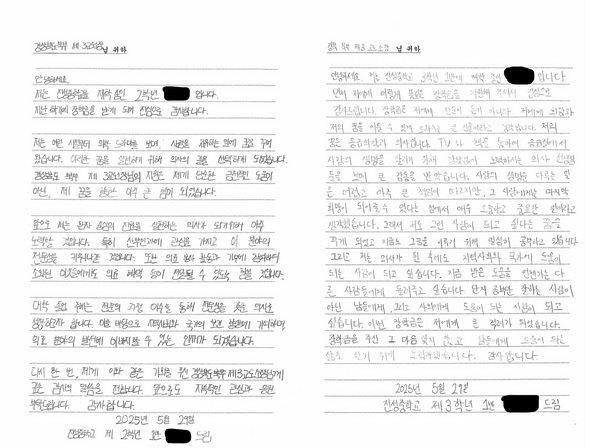 경상북도북부 제3교도소장 님 귀하
안녕하세요.
저는 진성중학교에 재학 중인 2학년 입니다.
지난 학기에 장학금을 받게 되어 진심으로 감사합니다.
저는 어린 시절부터 의학 드라마를 보며, 사람을 치료하는 일에 꿈을 키워
왔습니다. 이러한 꿈을 실현하기 위해 의사의 꿈을 선택하게 되었습니다.
경상북도 북부 제3교도소장님의 지원은 제게 단순한 금전적인 도움이
아닌, 제 꿈을 향한 아주 큰 힘이 되었습니다.
앞으로 저는 환자 중심의 진료를 실천하는 의사가 되기 위해 아주
노력할 것입니다. 특히 관심을 가지고 이 분야의
전문성을 키워나갈 것입니다. 또한 의료 봉사 활동과 기부에 참여하여
소외된 이웃들에게도 의료 혜택 등이 전달될 수 있도록 할 것입니다.
대학 졸업 후에는 전문의 과정 이수를 통해 전문성을 갖춘 의사로
성장하고자 합니다. 이를 바탕으로 지역사회와 국가의 보건 발전에 기여하며,
의료 분야의 발전에 이바지할 수 있는 인재가 되겠습니다.
다시 한 번, 제게 이와 같은 기회를 주신 경상북도북부 제3교도소장님께
깊은 감사의 말씀을 전합니다. 앞으로도 지속적인 관심과 응원
부탁드립니다. 감사합니다.
2025년 5월 29일
진성중학교 제 2학년 1반 드림
경북 북부 제3교도소장 님 귀하
안녕하세요. 저는 진성중학교 3학년 1반에 재학 중인 입니다
먼저 저에게 이렇게 뜻깊은 장학금을 지원해 주셔서 진심으로
감사드립니다. 장학금은 저에게 단순한 돈이 아니라 저에게 희망과
저의 꿈을 이룰 수 있게 도와주는 큰 선물이라고 생각했습니다. 저의
꿈은 응급의학과 의사입니다. TV나 책을 통하여 응급실에서
사람의 생명을 살리기 위해 끊임없이 노력하시는 의사 선생님
들을 보며 큰 감동을 받았습니다. 사람의 생명을 다루는 일
은 어렵고 아주 큰 책임이 따르지만, 그 사람에게는 마지막
희망이 되어줄 수 있다는 점에서 매우 소중하고 중요한 일이라고
생각했습니다. 그래서 저도 그런 사람이 되고 싶다는 꿈을
갖게 되었고 지금도 그 꿈을 이루기 위해 열심히 공부하고 있습니다.
그리고 저는 의사가 된 후에도 지역사회와 국가에 도움이
되는 사람이 되고 싶습니다. 지금 받은 도움을 언젠가는 다
른 사람들에게 돌려주고 싶습니다. 단지 공부만 잘하는 사람이
아닌 남들에게, 그리고 사회에게 도움이 되는 사람이 되고
싶습니다. 이번 장학금은 저에게 큰 격려가 되었습니다.
장학금을 주신 그 마음 잊지 않고 남들에게 도움이 되는
삶을 살기 위해 노력하겠습니다. 감사합니다.
2025년 5월 29일
진성중학교 제 3학년 1반 드림